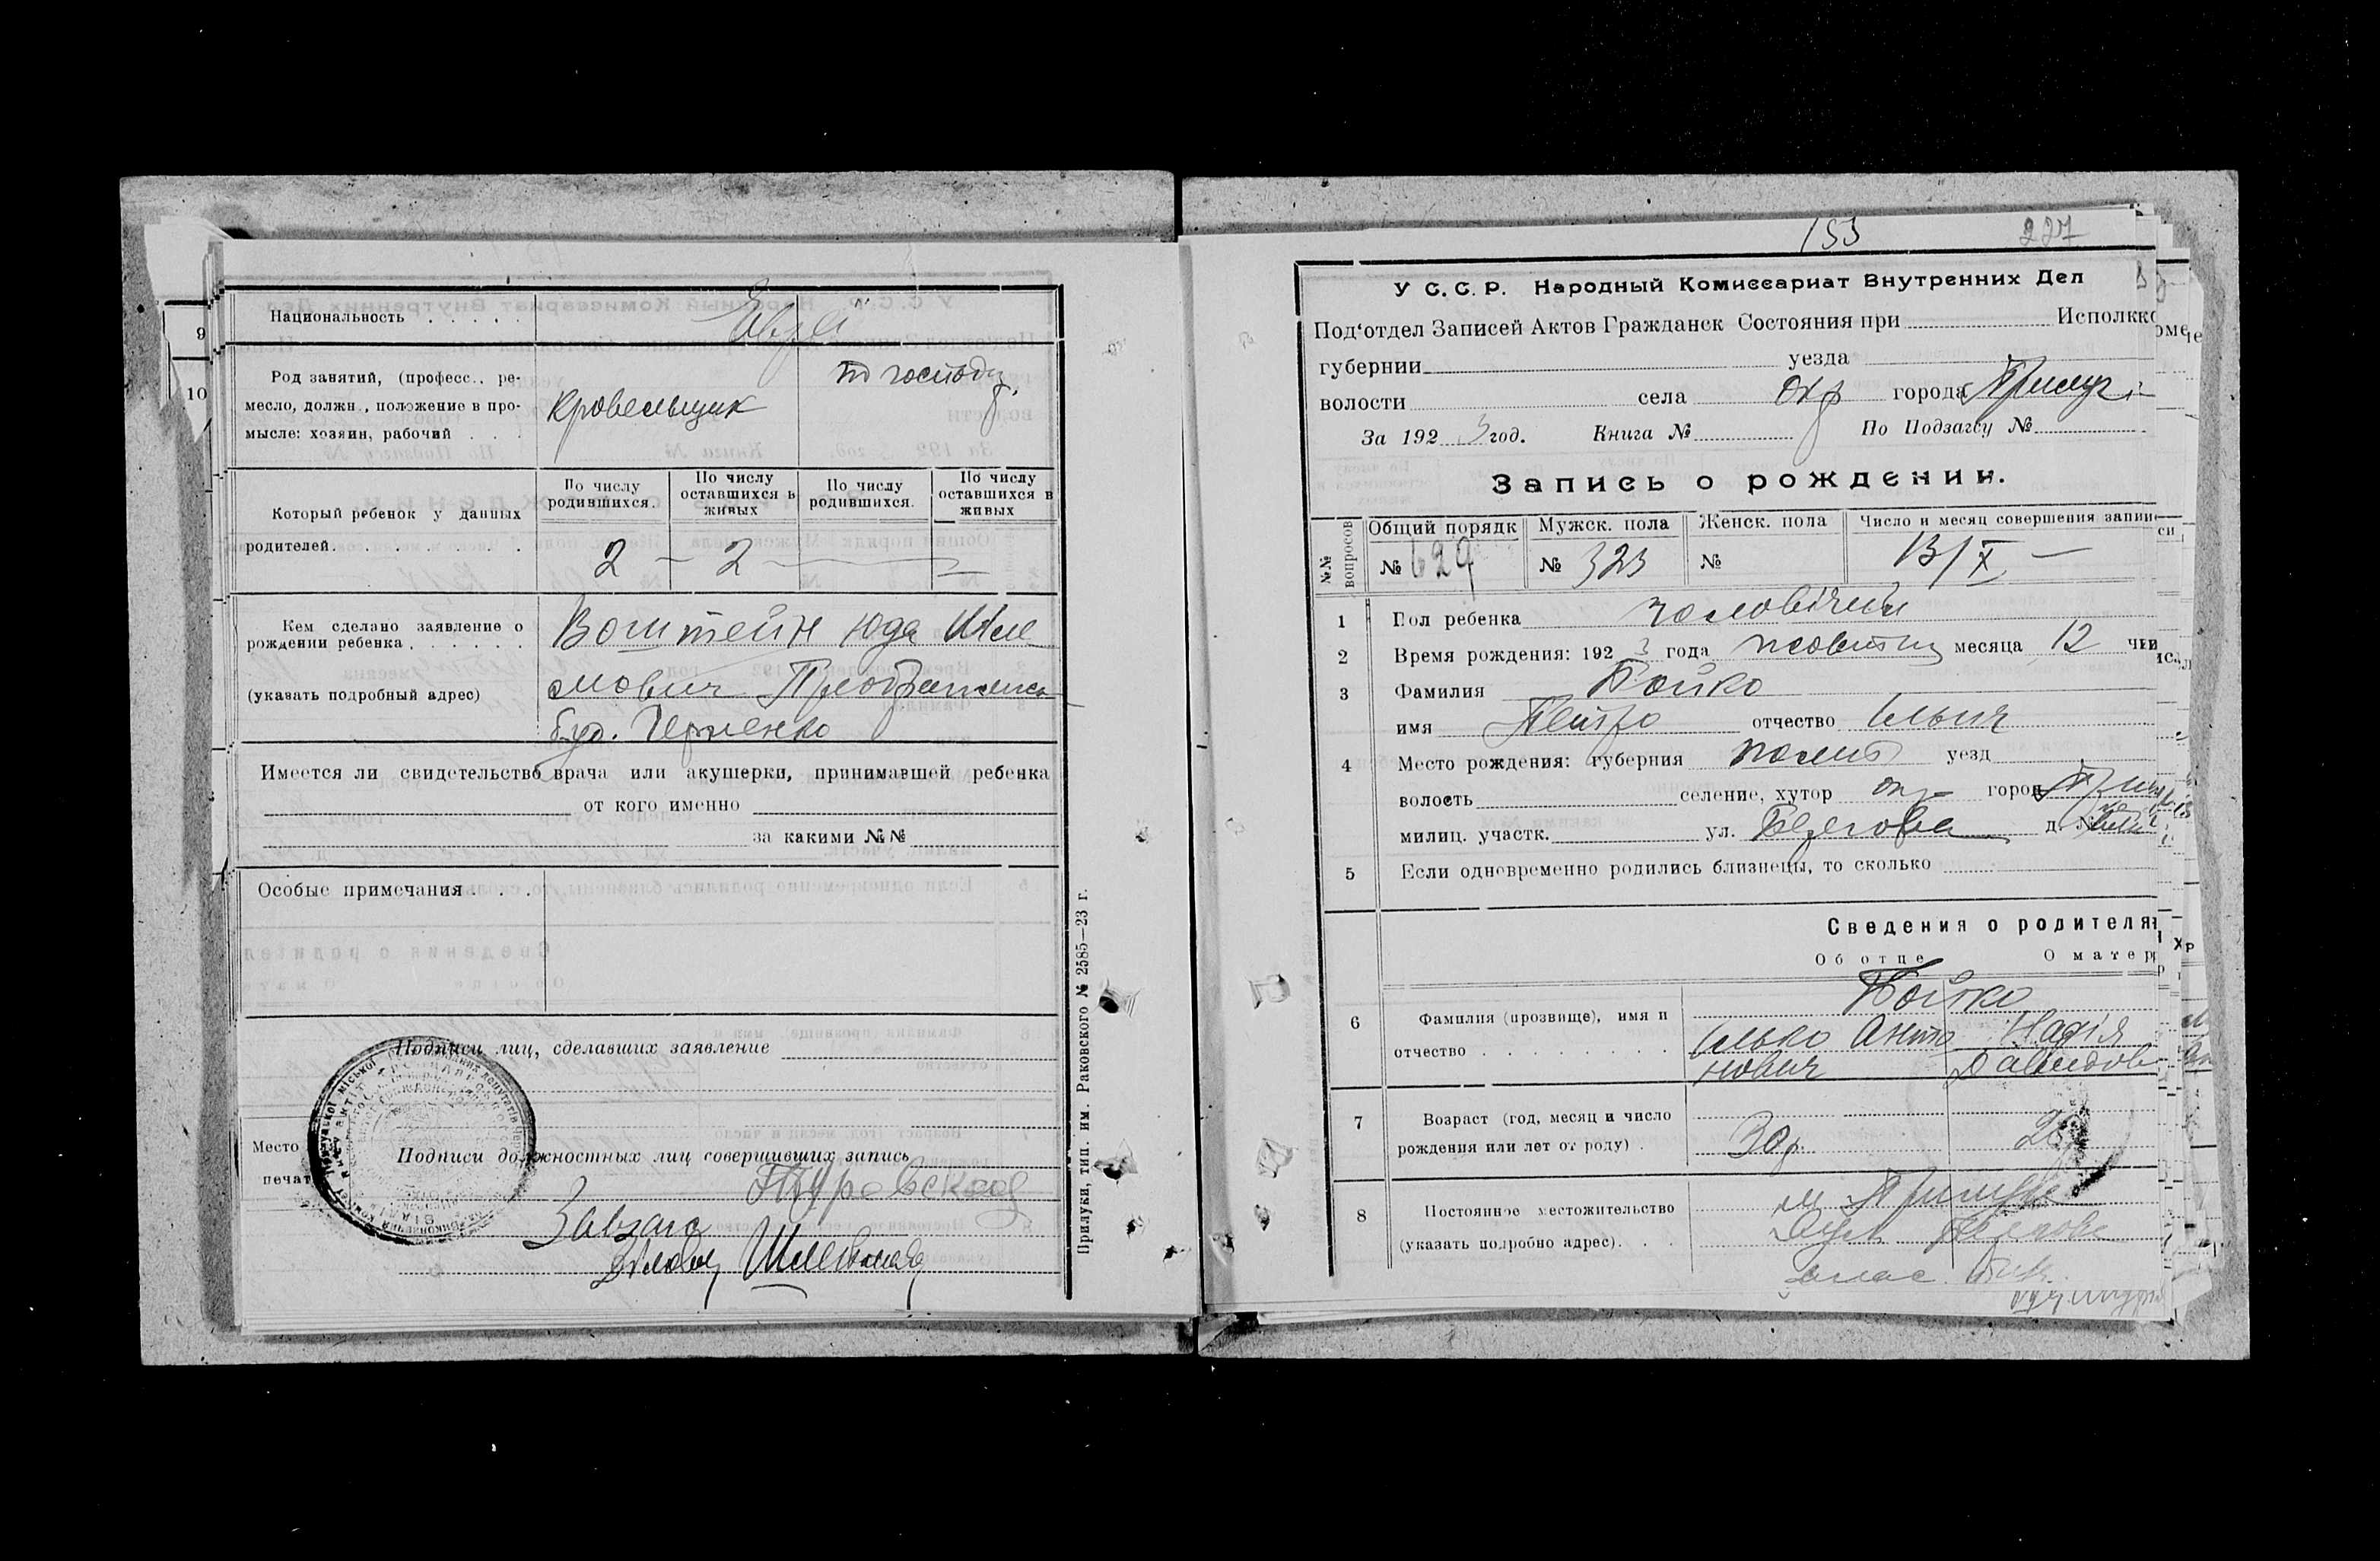 9
10
Национальность . . . . . Євреї
Род занятий, (професс.. ре-
месло, должн., положение в про-
мысле: хозяин, рабочий . . .
Кровельщик
по господ.
Который ребенок у данных
родителей . . . . . . . .
По числу родившихся.
По числу оставшихся в живых
По числу родившихся.
По числу оставшихся в живых
2 — 2 —
Кем сделано заявление о
рождении ребенка . . . . . .
(указать подробный адрес)
Юда
мович
буд.
Имеется ли свидетельство врача или акушерки, принимавшей ребенка
от кого именно
за какими №№
Особые примечания . . .
Подписи лиц, сделавших заявление
Место
печат
Подписи должностных лиц совершивших запись
Завзагс
Прилуки, тип. им. Раковского № 2585—23 г.
153 227
У С. С. Р. Народный Комиссариат Внутренних Дел
Под'отдел Записей Актов Гражданск Состояния при Исполкко
губернии уезда
волости села окр города Прилук
За 192 3 год. Книга № По Подзагсу №
Запись о рождении.
№№ вопросов
Общий порядк
Мужск. пола
Женск. пола
Число и месяц совершения запии
№ 629
№ 323
№
13/X —
1 Пол ребенка чоловічий
2 Время рождения: 192 3 года жовтня месяца 12 чи
3 Фамилия Бойко
имя Петро отчество Ільич
4 Место рождения: губерния Полт уезд
волость селение, хутор окр город
милиц. участк. ул. Берегова д. №
5 Если одновременно родились близнецы, то сколько
Сведения о родителя
Об отце О матер
Бойко
6 Фамилия (прозвище), имя и
отчество . . . . . . . .
Ілько Анто
нович
Надія
Давидов
7 Возраст (год, месяц и число
рождения или лет от роду) .
30 р.
28
8 Постоянное местожительство
(указать подробно адрес). . .
м. Прилуки